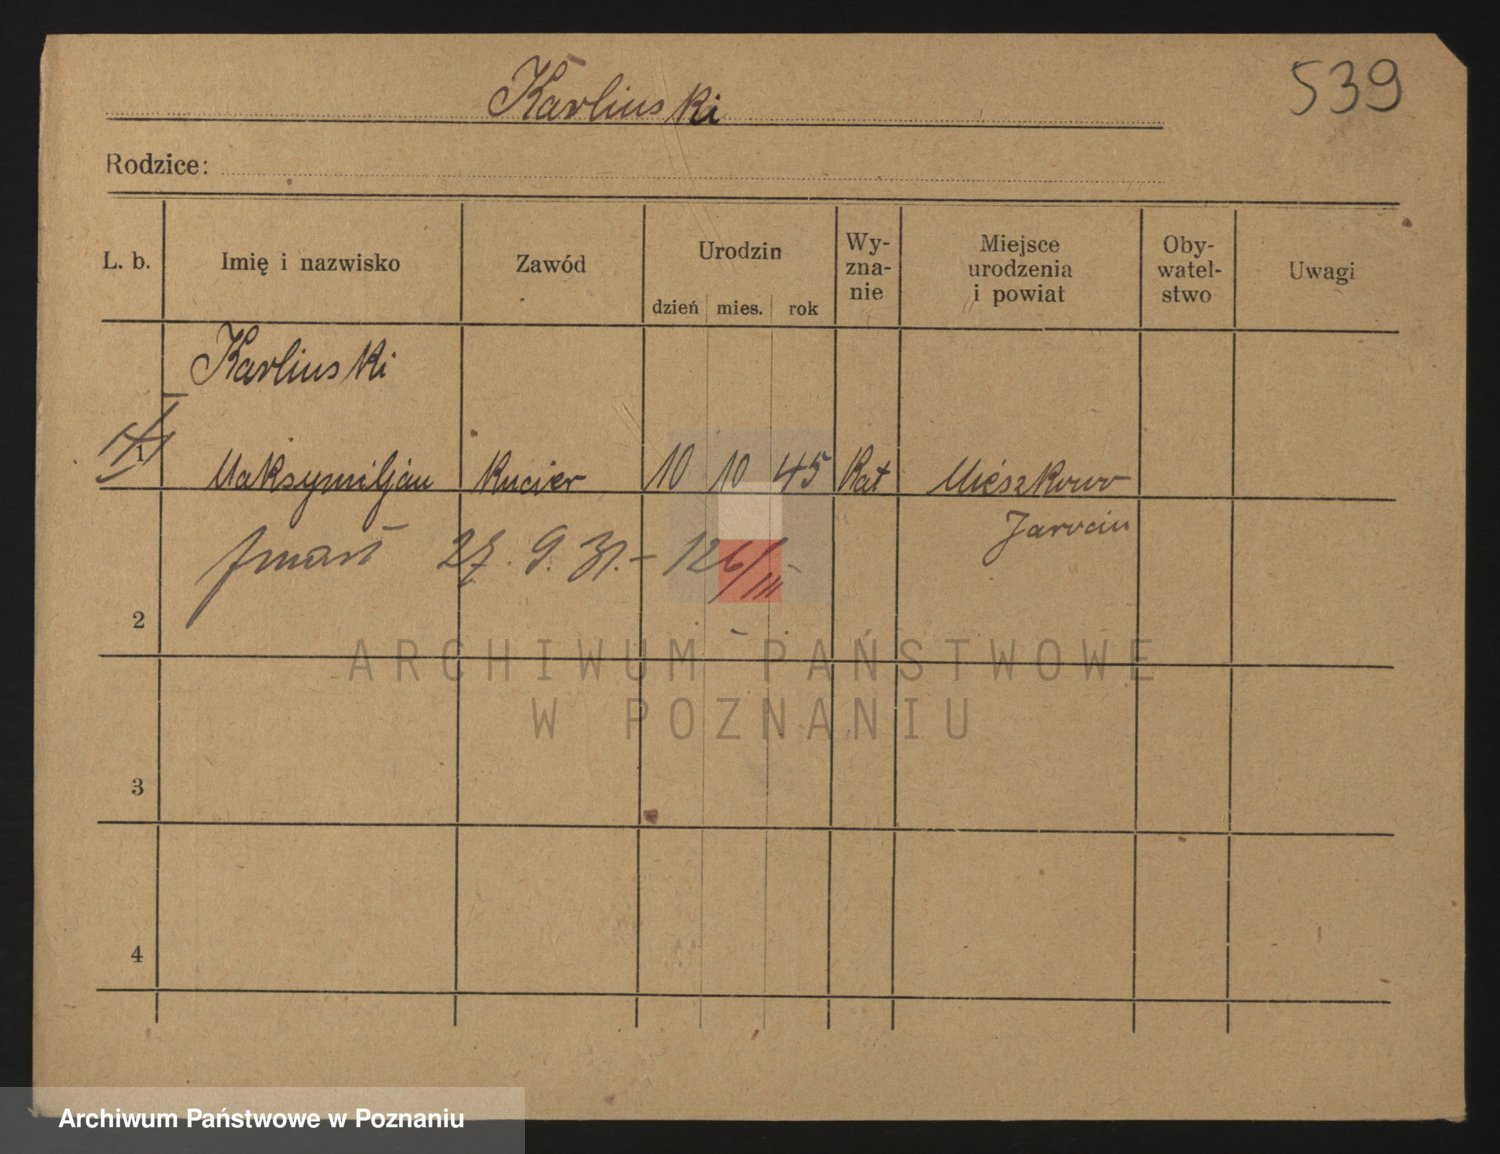 Karlinski
539
Rodzice:
L. b. Imię i nazwisko Zawód Urodzin dzień mies. rok Wy-zna-nie Miejsce urodzenia i powiat Oby-watel-stwo Uwagi
Karlinski
1 Maksymiljan Kucier 10 10 45 Kat Mieszkowo
Jarocin
zmarł 27. 9. 31. – 126/III
2
ARCHIWUM PAŃSTWOWE
W POZNANIU
3
4
Archiwum Państwowe w Poznaniu